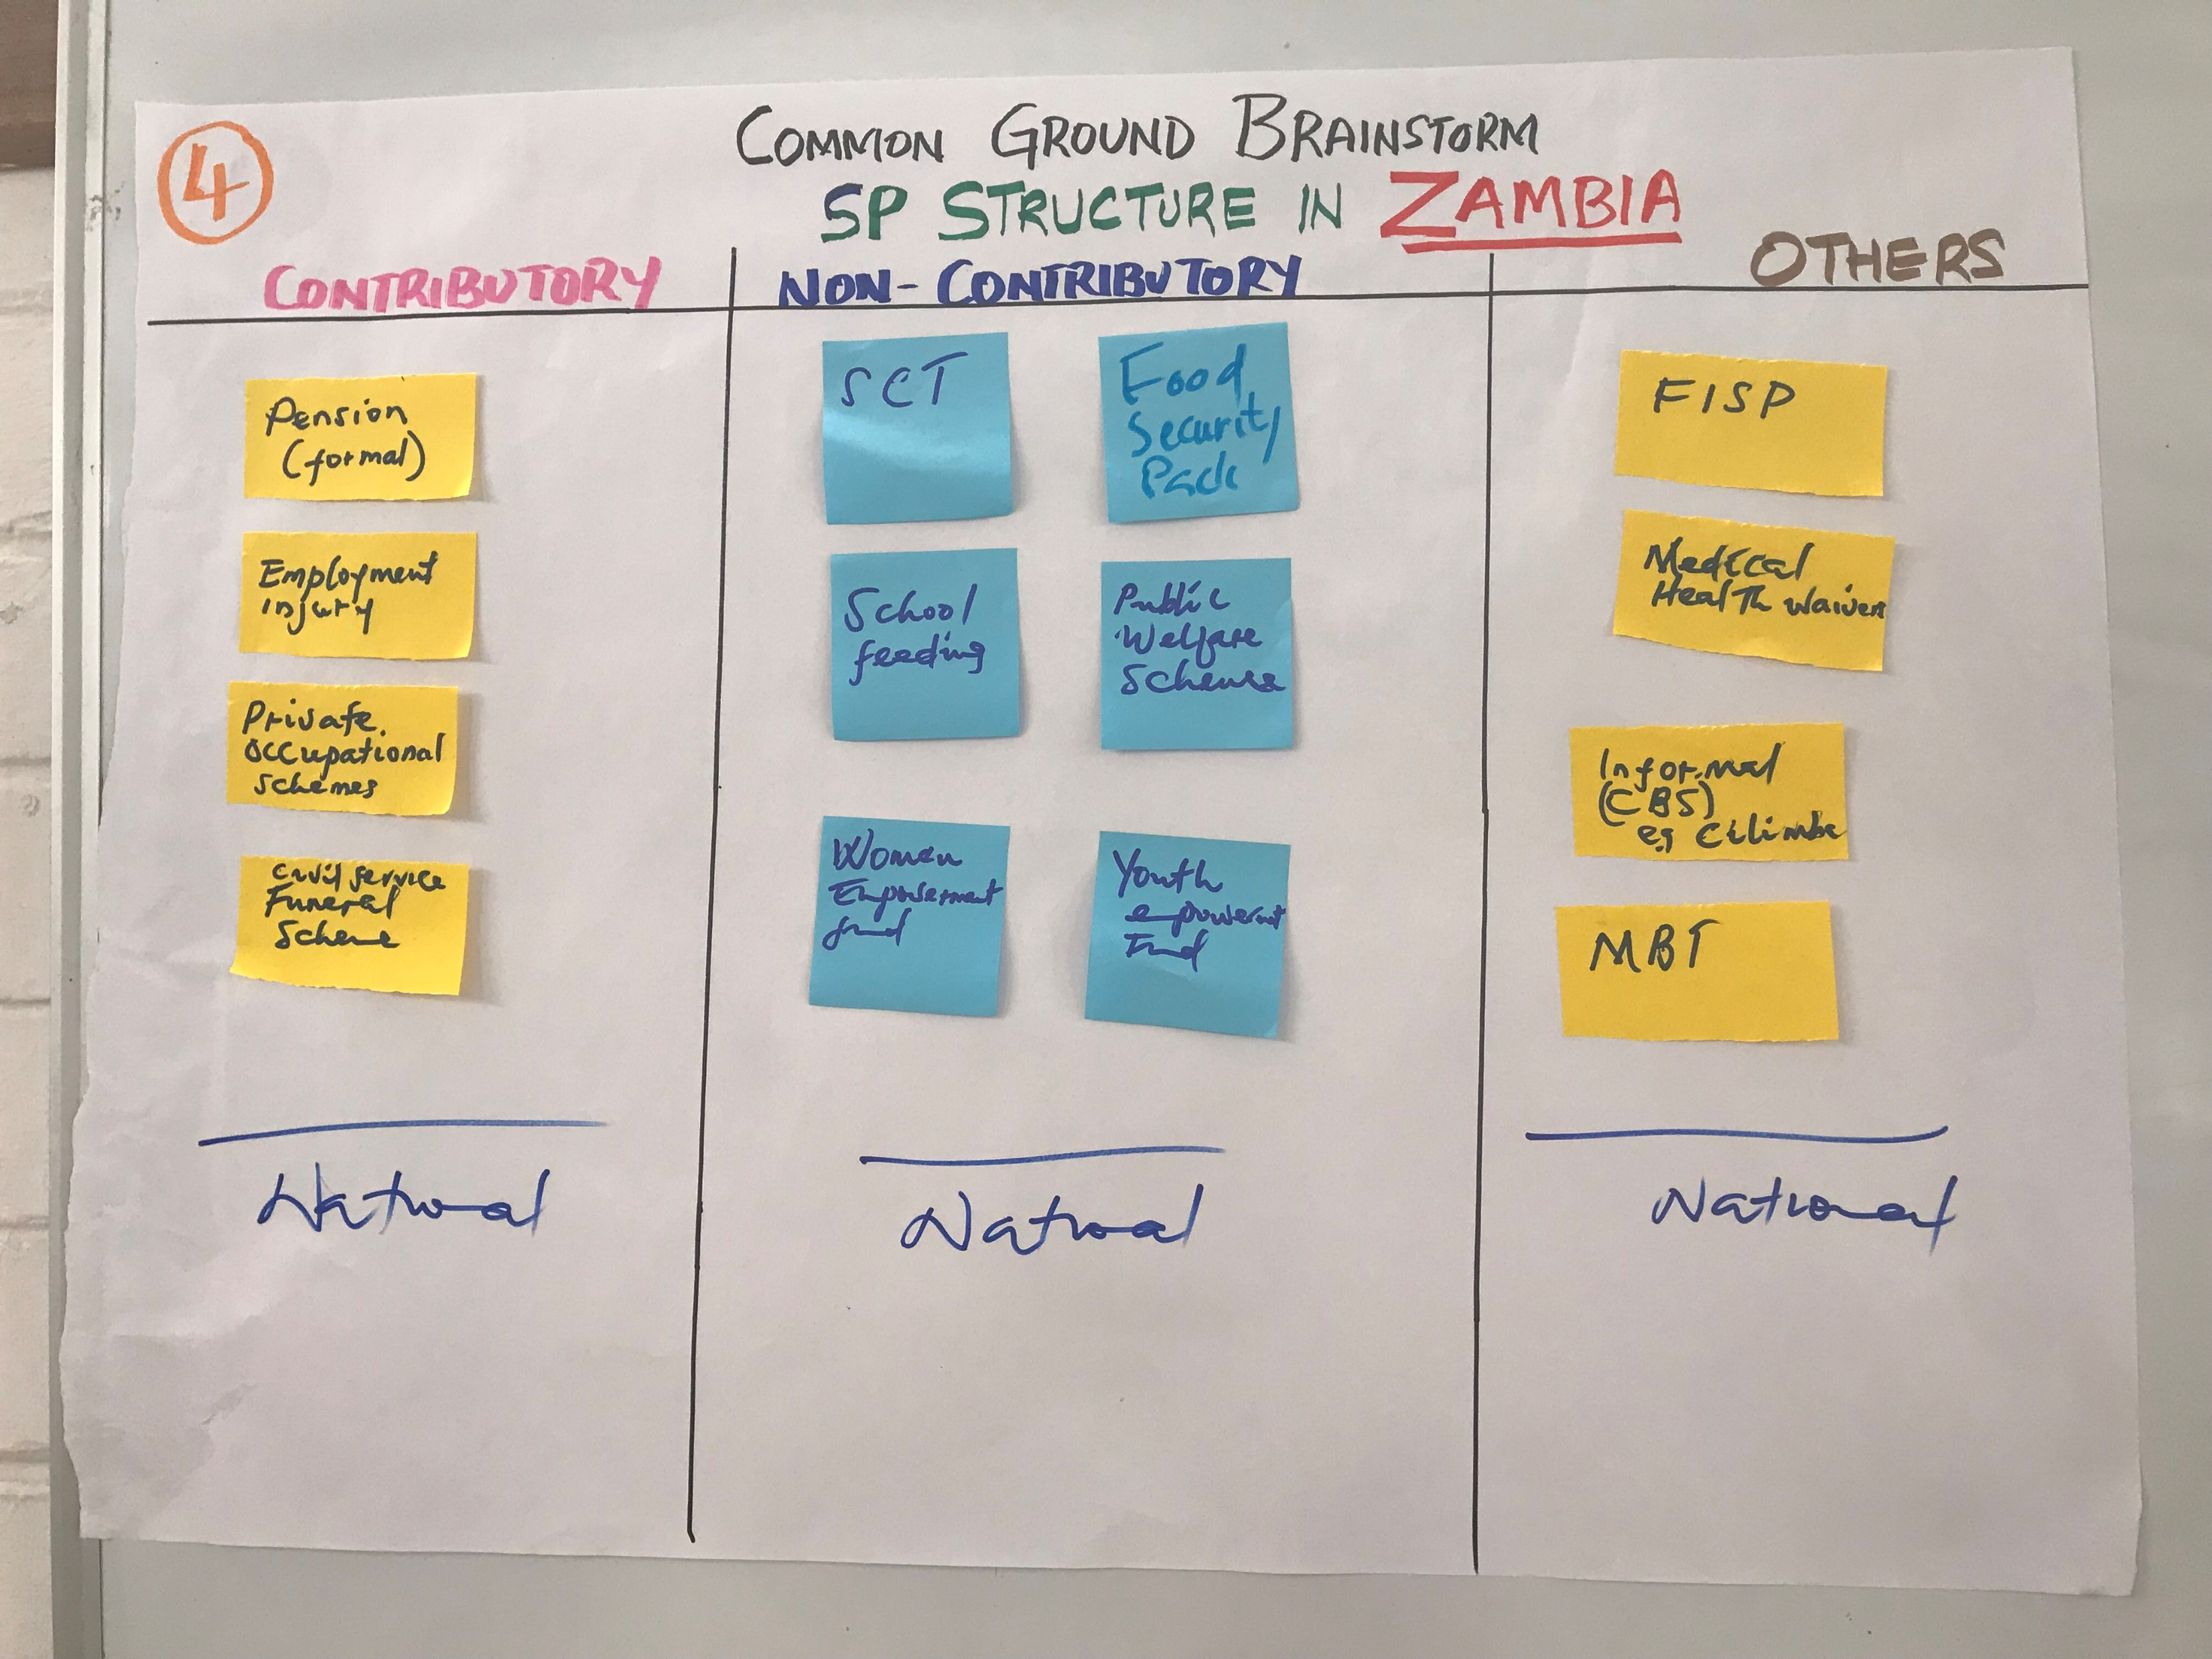 4
COMMON GROUND BRAINSTORM
SP STRUCTURE IN ZAMBIA
CONTRIBUTORY
Pension
(formal)
Employment
injury
Private
Occupational
Schemes
Civil Service
Funeral
Scheme
National
NON-CONTRIBUTORY
SCT
Food
Security
Pack
School
feeding
Public
Welfare
Scheme
Women
Empowerment
fund
Youth
empowerment
Fund
National
OTHERS
FISP
Medical
Health waivers
Informal
(CBS)
eg Cilimba
MBT
National